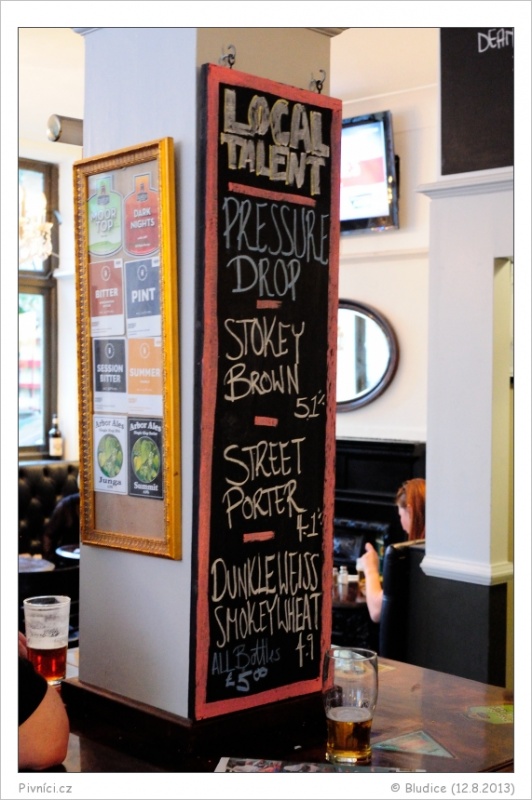 DEAN
LOCAL
TALENT
PRESSURE
DROP
STOKEY
BROWN
5.1%
STREET
PORTER
4.1%
DUNKLEWEISS
SMOKEYWHEAT
4.9
ALL Bottles
£5.00
MAJOR
TOP
DARK
NIGHTS
BITTER
PINT
SESSION
BITTER
SUMMER
Arbor Ales
Junga
Arbor Ales
Summit
Pivníci.cz
© Bludice (12.8.2013)